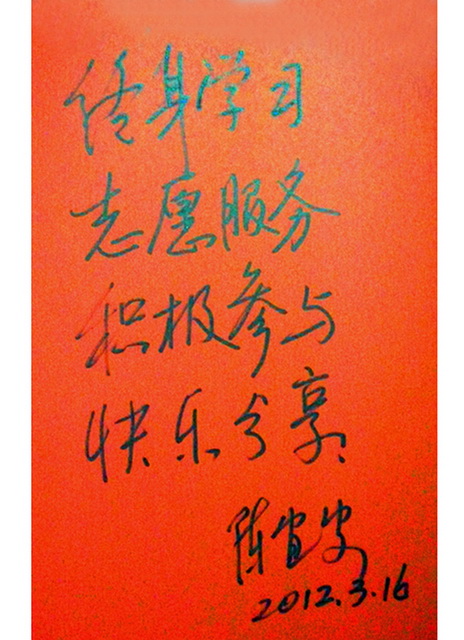 终身学习
志愿服务
积极参与
快乐分享
陈宜安
2012.3.16